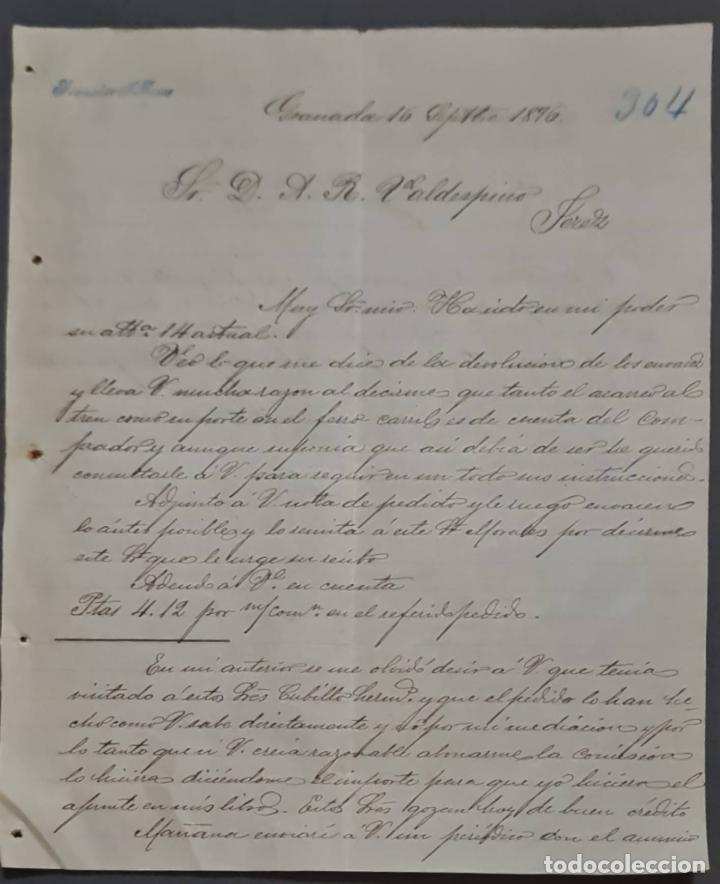 304
Granada 16 Septbre 1896.
Sr. D. A. R. Valdespino
Jerez
Muy Sr. mio: Ha sido en mi poder
su atta. 14 actual.
Veo lo que me dice de la devolucion de los envases
y lleva V. mucha razon al decirme que tanto el acarreo al
tren como su porte en el ferro carril es de cuenta del Com-
prador y aunque suponia que asi debiá de ser he querido
consultarle á V. para seguir en un todo sus instrucciones.
Adjunto á V. nota de pedido y le ruego envasen
lo ántes posible y lo remita á este Sr. Morales por decirme
este Sr. que le urge su recibo
Adeudo á V. en cuenta
Ptas 4.12 por m/ comon. en el referido pedido.
En mi anterior se me olvidó desir á V. que tenia
visitado á estos Sres Cubillo Hermos. y que el pedido lo han he-
cho como V. sabe directamente y nó por mi mediacion y por
lo tanto que si V. creia razonable abonarme la comisión
lo hiciera diciéndome el importe para que yo hiciera el
apunte en mis libros. Estos Sres gozan hoy de buen crédito
Mañana enviaré á V. un periódico con el anuncio
todocoleccion
todocoleccion.net